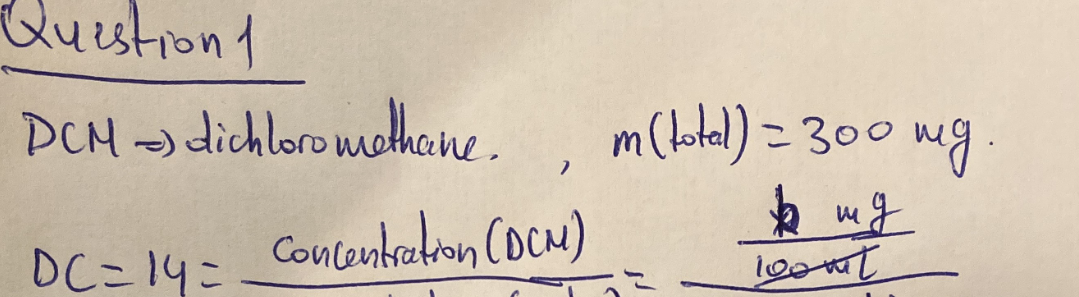 Question 1
DCM => dichloromethane. , m(total) = 300 mg.
DC = 14 = Concentration (DCM) = mg
100 ml